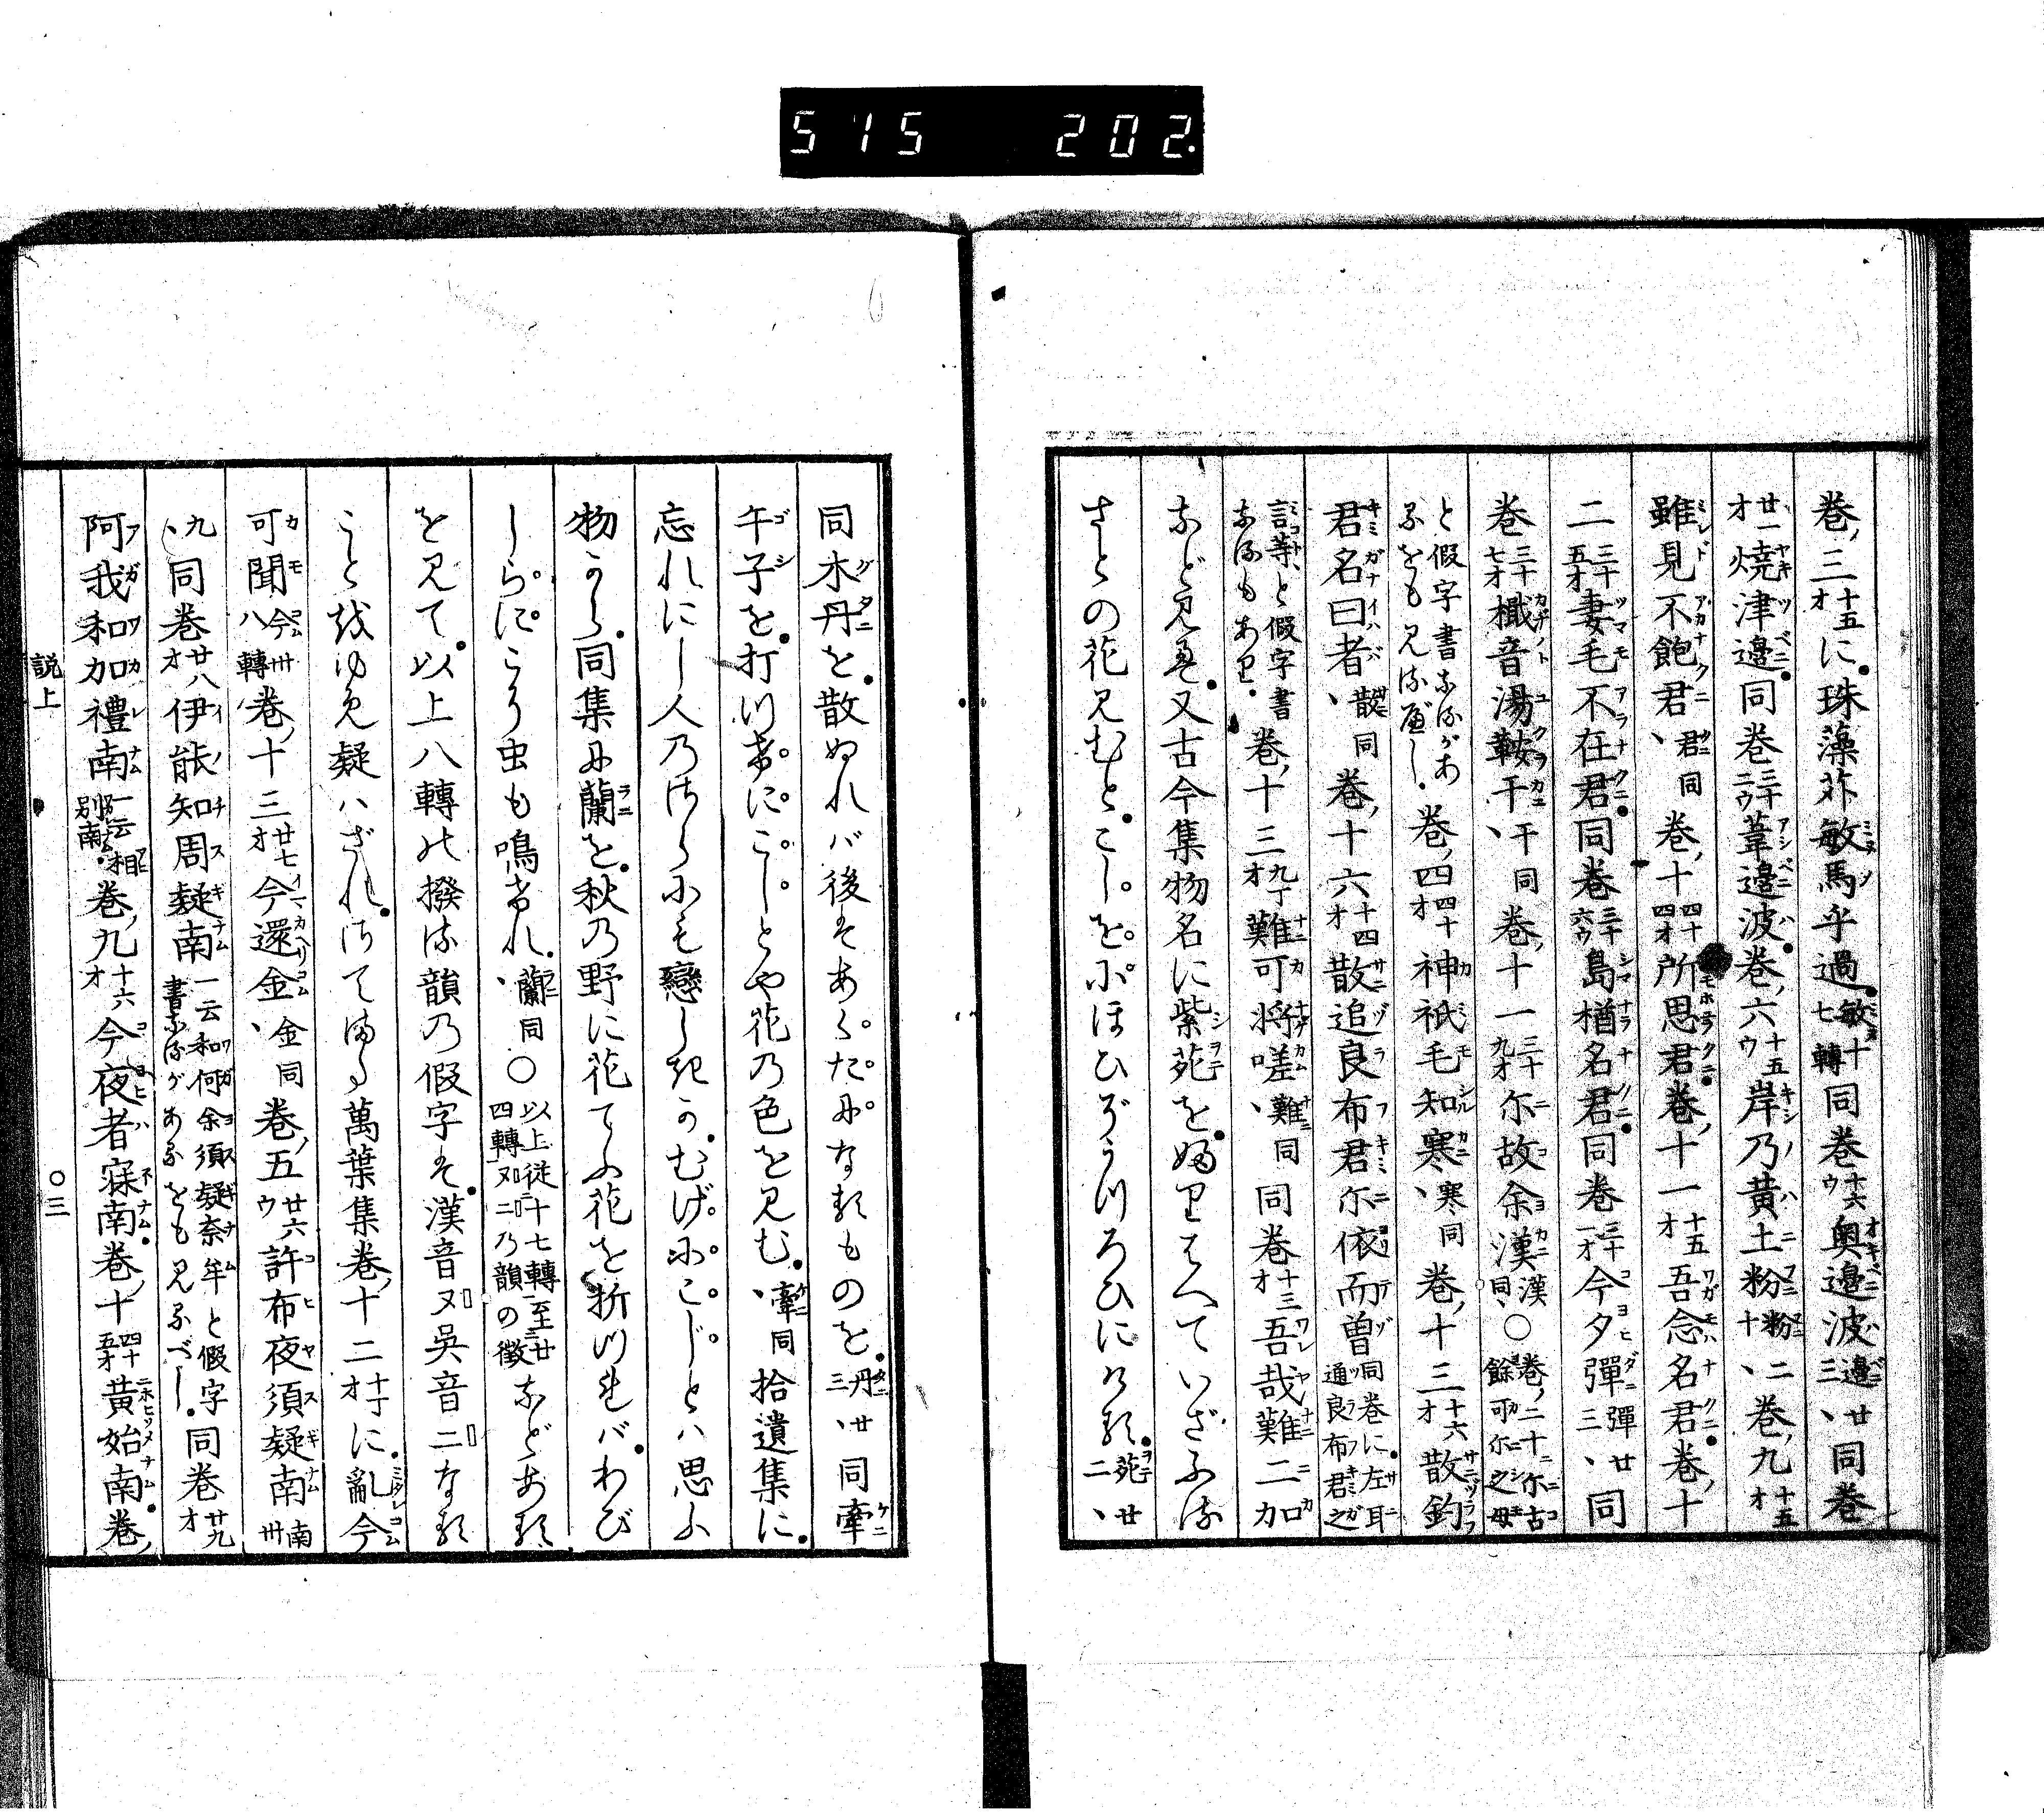 515 202.
巻三十五オに珠藻苅敏馬乎過敏十七轉同巻十六ウ奥邊波邊廿三、同巻
廿一オ焼津邊同巻三十二ウ葦邊波巻六十五ウ岸乃黄土粉粉二十、巻九十五オ
雖見不飽君、君同巻十四十四オ所思君巻十一十五オ吾念名君巻十
二三十五オ妻毛不在君同巻三十六ウ島楢名君同巻三十一オ今夕彈彈廿三、同
巻三十七オ檝音湯鞍干、干同巻十一三十九オ尓故余漢漢同、〇巻二十二尓古餘可尓之母
と假字書なるがあるをも見るべし巻四四十オ神祇毛知寒、寒同巻十三十六オ散釣
君名曰者、散同巻十六十四オ散追良布君尓依而曽同巻に左耳通良布君之
言等、と假字書なるもあり巻十三九丁オ難可将嗟、難同同巻十三オ吾哉難二加
など見ゆ又古今集物名に紫苑をふりはへていざふる
さとの花見むとこしをにほひぞうつろひにける苑廿二、
同木丹を散ぬれバ後はあくたになるものを丹、廿三同牽
午子を打つけにこしとや花の色を見む、牽同拾遺集に
忘れにし人のさらにも戀しきかむげにこじとハ思ふ
物から同集に蘭を秋の野に花てふ花を折つればわび
しらにこそ虫も鳴けれ、蘭同〇以上従十七轉至廿四轉ヌニの韻の徴などある
を見て以上八轉の撥る韻の假字は漢音ヌ呉音ニなる
ことをゆめ疑ハざれさてまた萬葉集巻十二十丁オに亂今
可聞今卅八轉巻十三廿七オ今還金、金同巻五廿六ウ許布夜須疑南南卅
九、同巻廿八オ伊能知周疑南一云和何余須疑奈牟と假字書なるがあるをも見るべし同巻廿九オ
阿我和加禮南一云相別南巻九十六オ今夜者寐南巻十四十五オ黄始南巻
説上 〇三